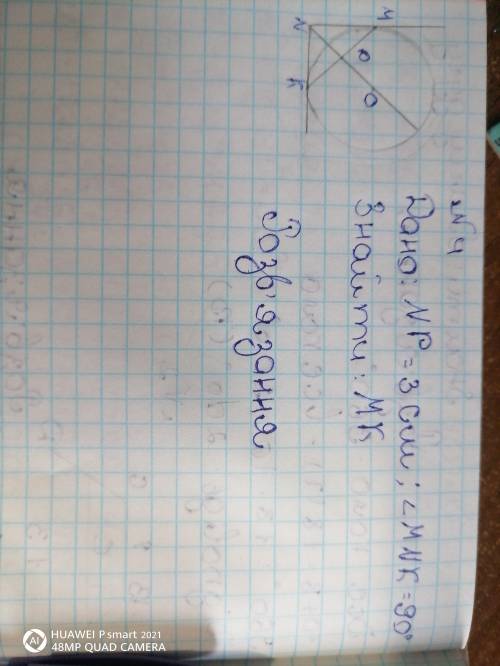 № 4
N
M
P
O
K
Дано: NP = 3 см; ∠MNK = 90°
Знайти: MK
Розв'язання
HUAWEI P smart 2021
48MP QUAD CAMERA